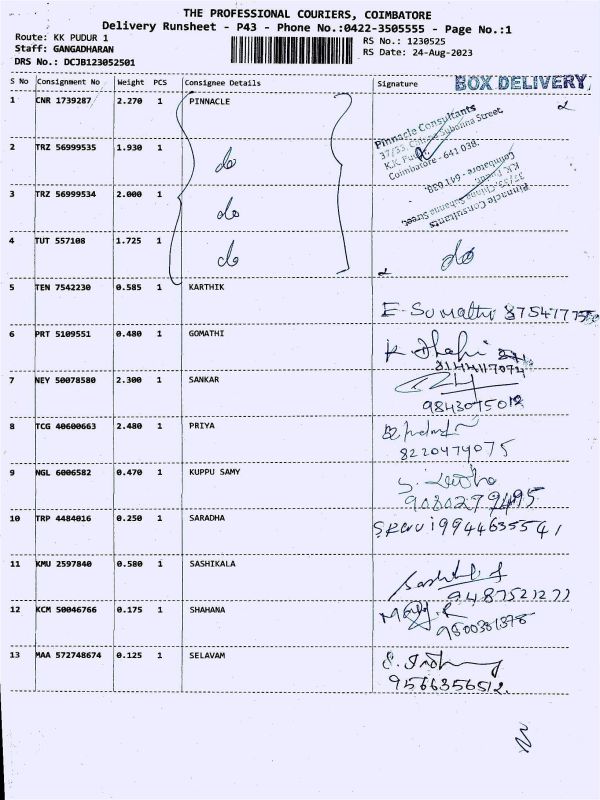 THE PROFESSIONAL COURIERS, COIMBATORE
Delivery Runsheet - P43 - Phone No.:0422-3505555 - Page No.:1
Route: KK PUDUR 1
RS No.: 1230525
Staff: GANGADHARAN
RS Date: 24-Aug-2023
DRS No.: DCJB123052501
S No Consignment No Weight PCS Consignee Details Signature BOX DELIVERY
1 CNR 1739287 2.270 1 PINNACLE
Pinnacle Consultants
37/33, Chinna Subanna Street,
K.K. Pudur,
Coimbatore - 641 038.
2 TRZ 56999535 1.930 1 do
3 TRZ 56999534 2.000 1 do
Pinnacle Consultants
37/33, Chinna Subanna Street,
K.K. Pudur,
Coimbatore - 641 038.
4 TUT 557108 1.725 1 do do
5 TEN 7542230 0.585 1 KARTHIK
E. Sumathi
6 PRT 5109551 0.480 1 GOMATHI
K
7 NEY 50078580 2.300 1 SANKAR
8 TCG 40600663 2.480 1 PRIYA
8220474075
9 NGL 6006582 0.470 1 KUPPU SAMY
9080279495
10 TRP 4484016 0.250 1 SARADHA
9944635541
11 KMU 2597840 0.580 1 SASHIKALA
9487521277
12 KCM 50046766 0.175 1 SHAHANA
13 MAA 572748674 0.125 1 SELAVAM
9566356512.